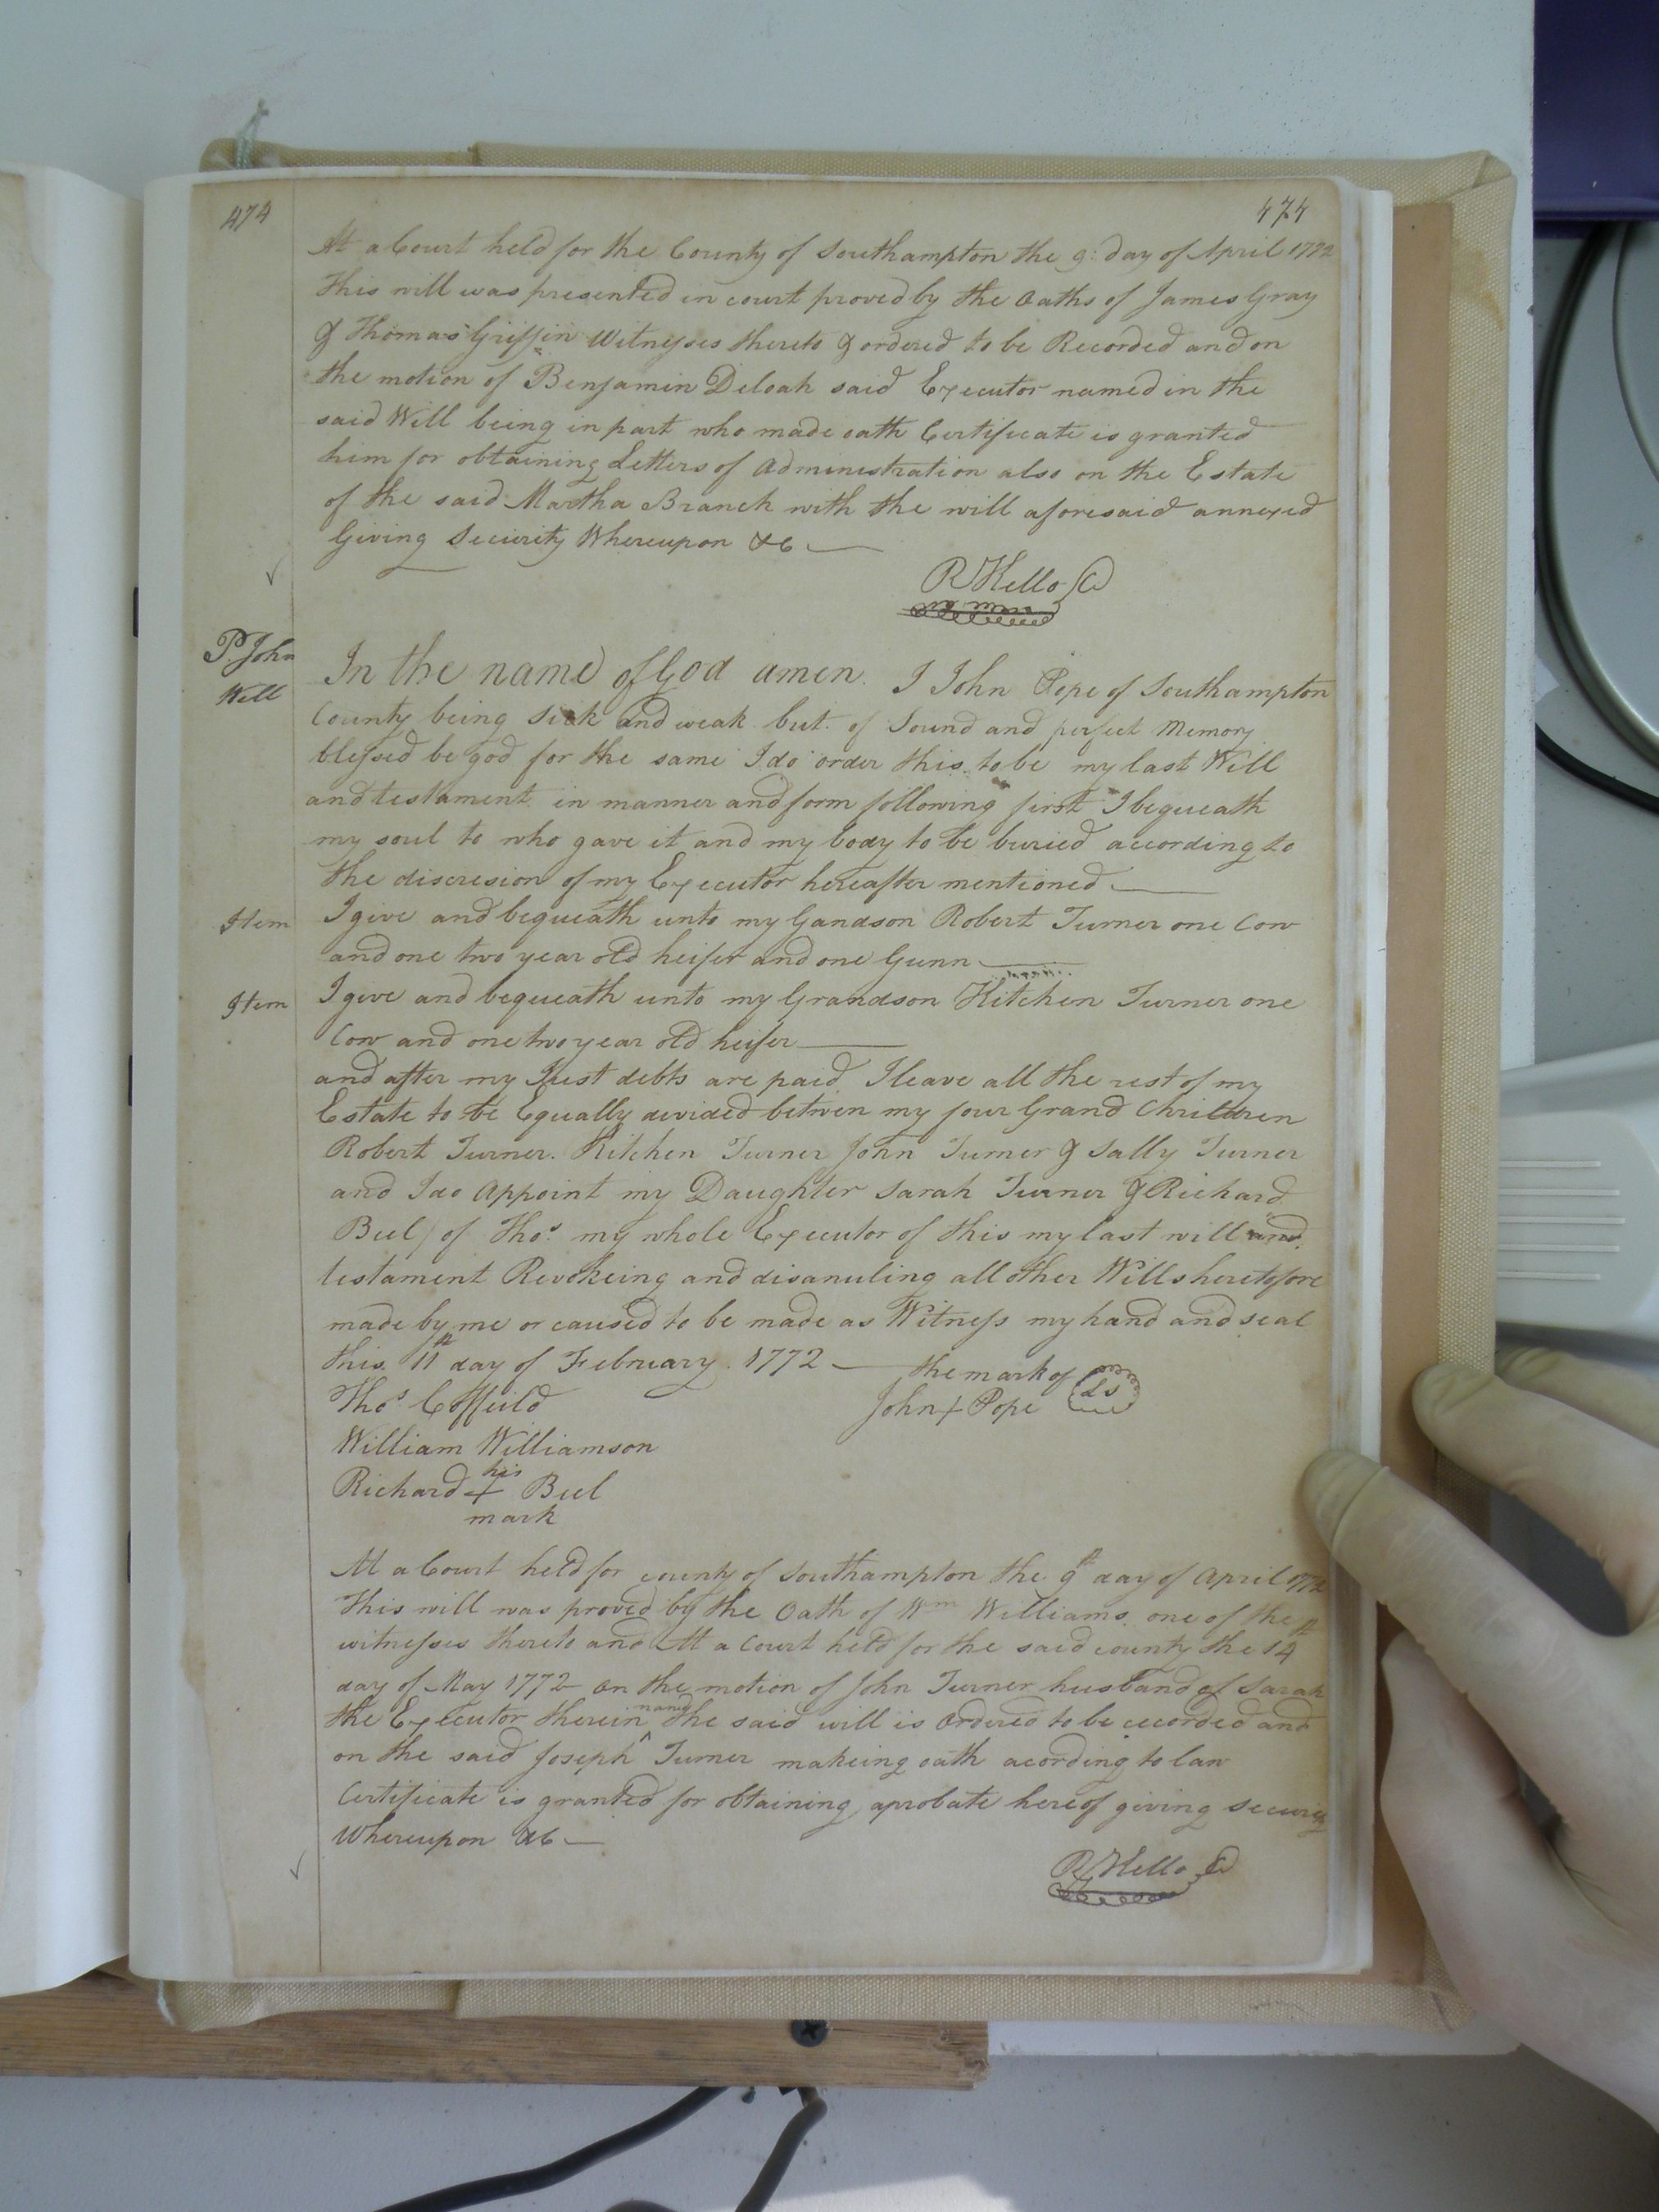 474
474
At a Court held for the County of Southampton the 9: day of April 1772
This will was presented in court proved by the Oaths of James Gray
& Thomas Griffin Witnesses thereto & ordered to be Recorded and on
the motion of Benjamin Deloah said Executor named in the
said Will being in part who made oath Certificate is granted
him for obtaining Letters of Administration also on the Estate
of the said Martha Branch with the will aforesaid annexed
Giving Security Whereupon &c
R Kello
P. John
Will
In the name of God amen. I John Pope of Southampton
County being sick and weak but of Sound and perfect Memory
blessed be god for the same I do order this to be my last Will
and testament in manner and form following first I bequeath
my soul to who gave it and my body to be buried according to
the discresion of my Executor hereafter mentioned
Item I give and bequeath unto my Gandson Robert Turner one Cow
and one two year old heifer and one Gunn
Item I give and bequeath unto my Grandson Kitchen Turner one
Cow and one two year old heifer
and after my Just debts are paid I leave all the rest of my
Estate to be Equally devided betwen my four Grand Children
Robert Turner. Kitchen Turner John Turner & Sally Turner
and I do Appoint my Daughter Sarah Turner & Richard
Beel / of Thos. my whole Executor of this my last will and
testament Revokeing and disanuling all other Wills heretofore
made by me or caused to be made as Witness my hand and seal
this 11th day of February. 1772 the mark of
Thos Coffeild John + Pope Ls
William Williamson
his
Richard + Beel
mark
At a Court held for county of Southampton the 9th day of April 1772
This will was proved by the Oath of Wm Williams one of the
witnesses thereto and At a Court held for the said county the 14th
day of May 1772 on the motion of John Turner husband of Sarah
the Executor therein named the said will is Ordered to be recorded and
on the said Joseph ^ Turner makeing oath acording to law
Certificate is granted for obtaining aprobate hereof giving security
Whereupon &c
R Kello